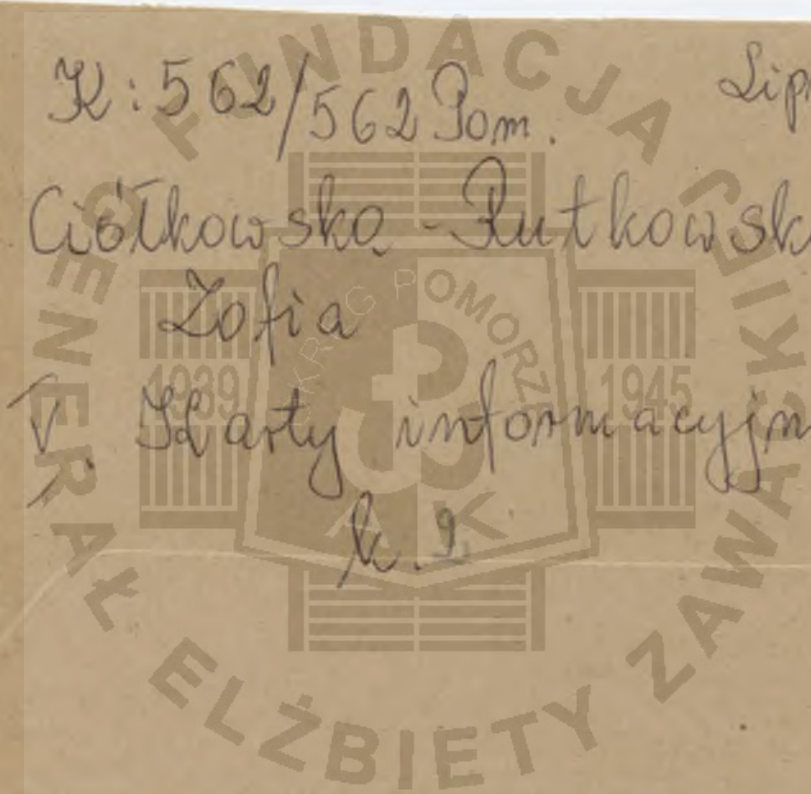 K: 562/562 Pom. Lip
Ciółkowska-Rutkowsk
Zofia
V. Karty informacyjn
k. 9.
FUNDACJA GENERAŁ ELŻBIETY ZAWACKIEJ
OKRĘG POMORZE
1939 1945
AK